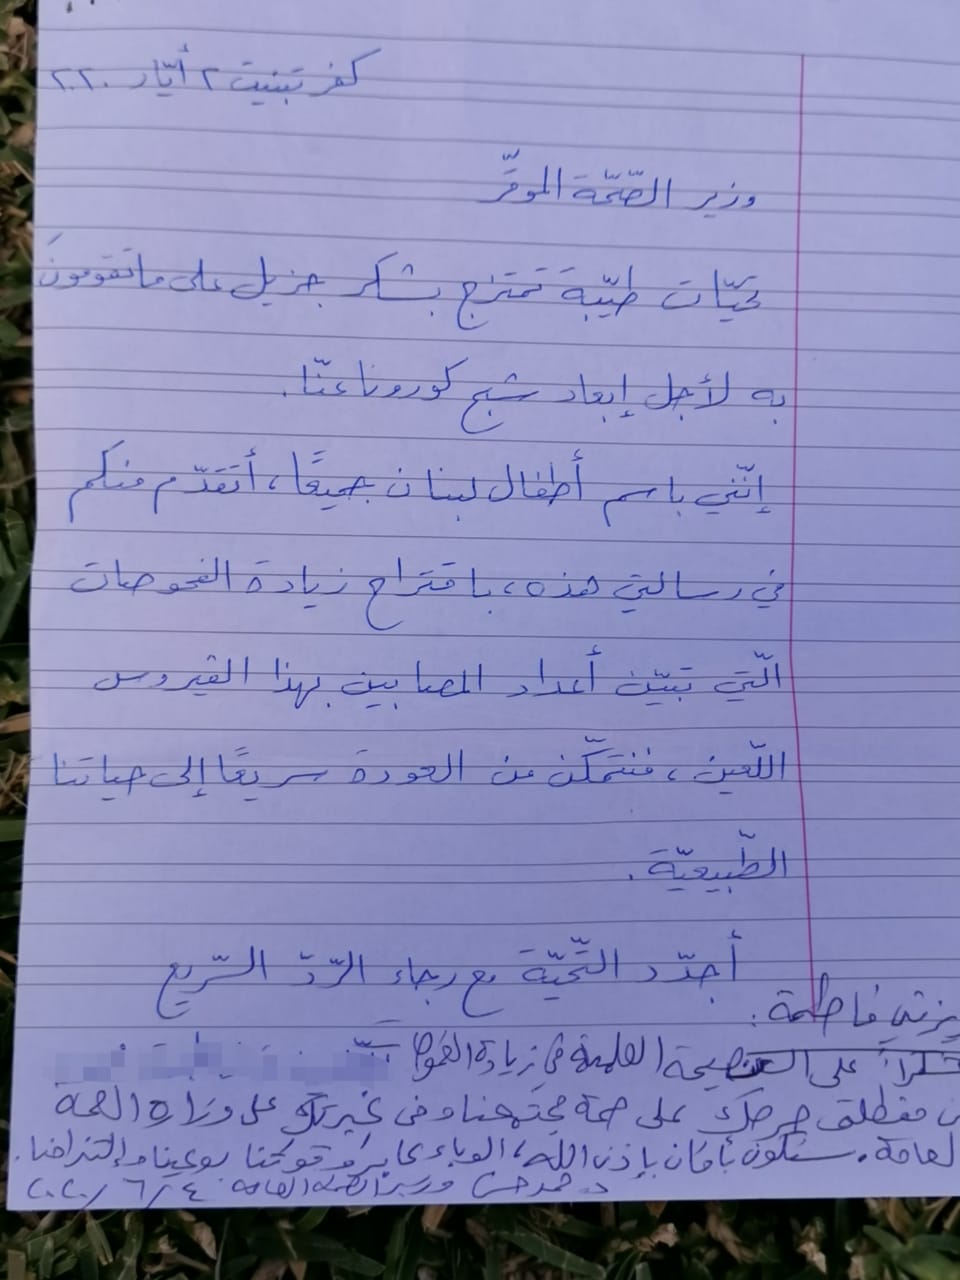 كفرتبنيت ٢ أيّار ٢٠٢٠
وزير الصّحّة الموقّر
تحيّات طيّبة تمتزج بشكر جزيل على ما تقومونَ
به لأجل إبعاد شبح كورونا عنّا.
إنّني باسم أطفال لبنان جميعًا، أتقدّم منكم
في رسالتي هذه، باقتراح زيادة الفحوصات
الّتي تبيّن أعداد المصابين بهذا الڤيروس
اللّعين، فنتمكّن من العودة سريعًا إلى حياتنا
الطّبيعيّة.
أجدّد التّحيّة مع رجاء الرّدّ السّريع
عزيزتي فاطمة:
شكراً على النصيحة العلمية في زيادة الفحوصات
من منطلق حرصك على صحة مجتمعنا وفي غيرتك على وزارة الصحة
العامة. سنكون بأمان بإذن الله، الوباء عابر وقوتنا بوعينا وإلتزامنا.
د. حمد حسن وزير الصحة العامة ٤/٦/٢٠٢٠